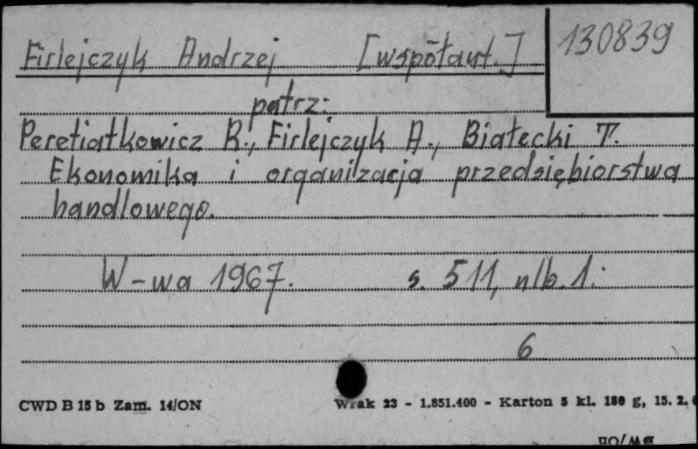 Firlejczyk Andrzej [współaut.] 130839
patrz:
Peretiatkowicz R., Firlejczyk A., Białecki T.
Ekonomika i organizacja przedsiębiorstwa
handlowego.
W-wa 1967. s. 511, nlb. 1.
6
CWD B 15 b Zam. 14/ON Wrak 23 - 1.851.400 - Karton 5 kl. 180 g, 15. 2.